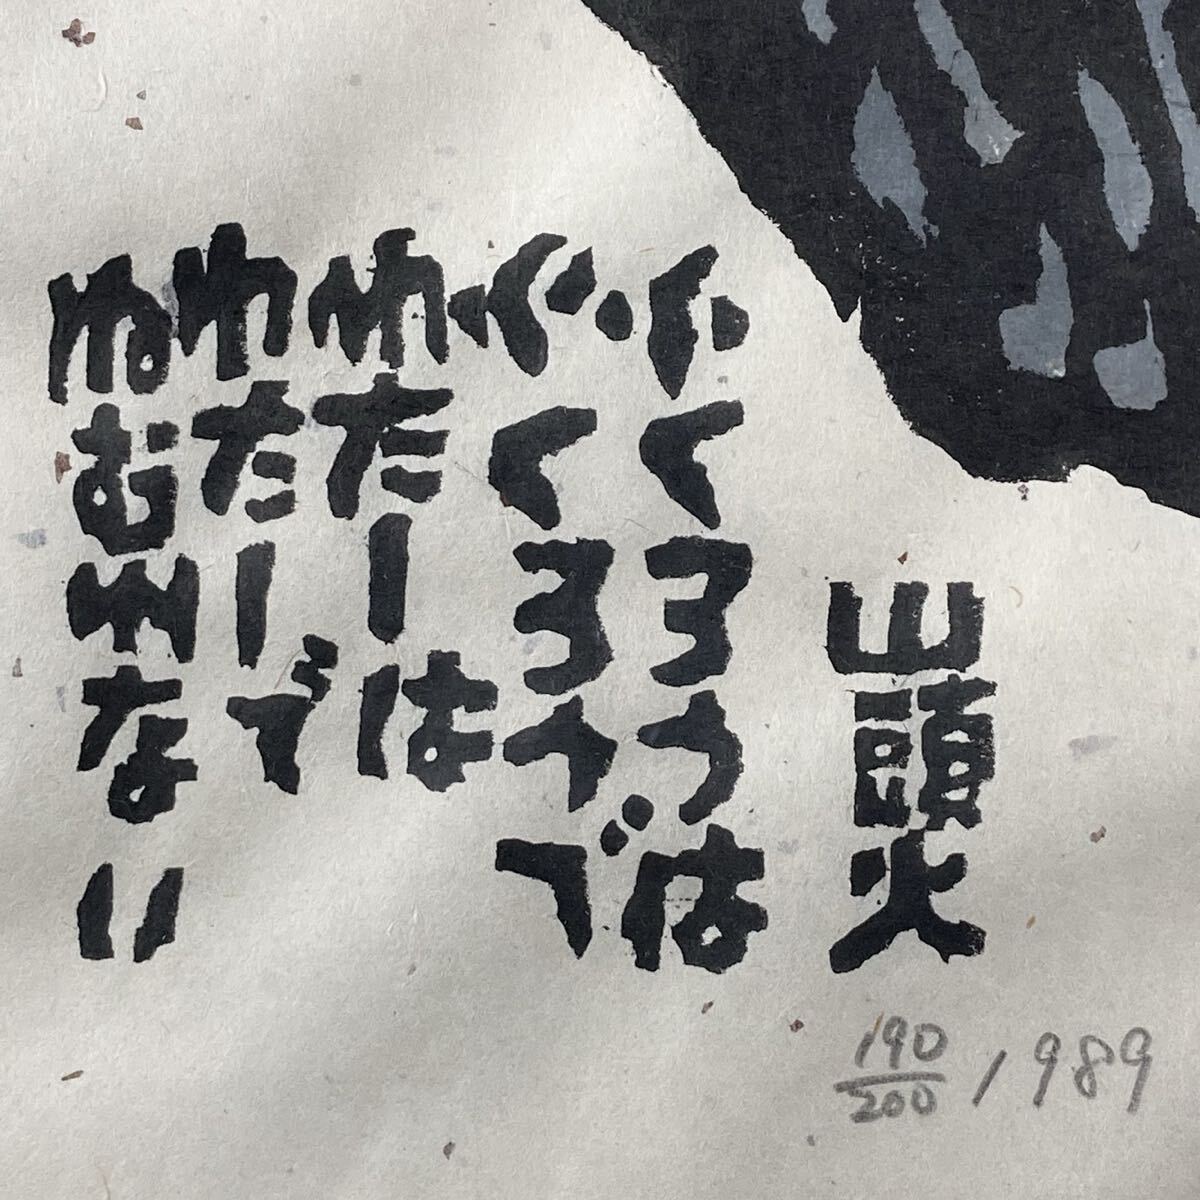 山頭火
ふくろうは
ふくろうで
わたしは
わたしで
ねむれない
190/200 1989